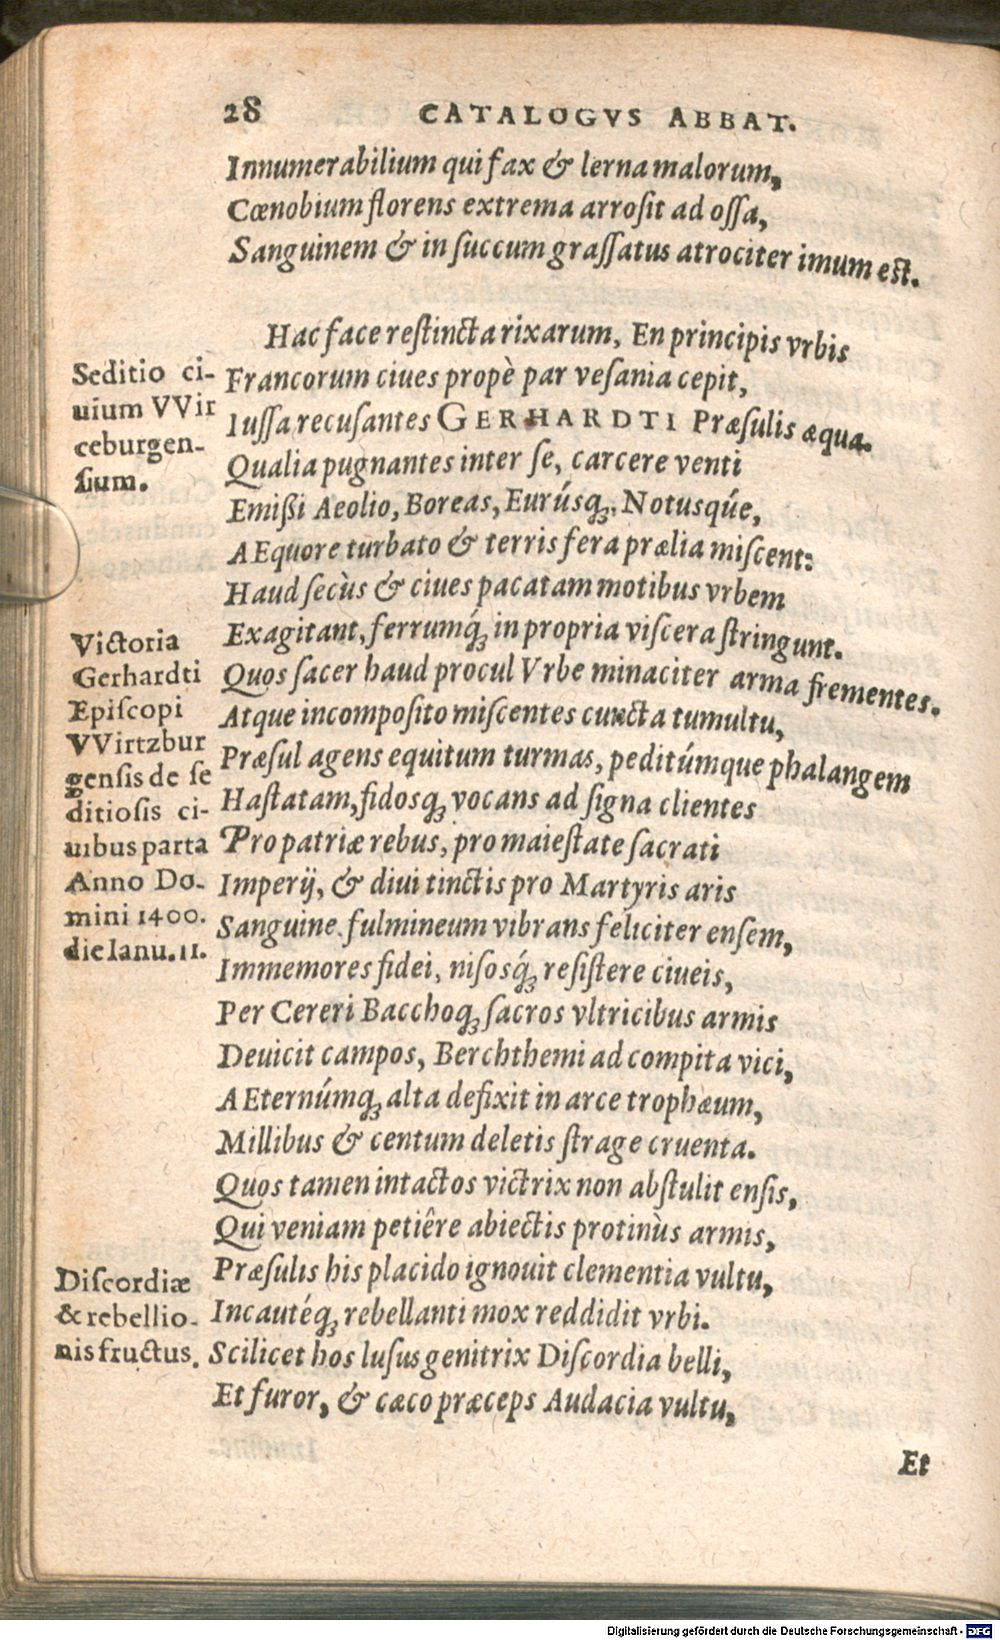 28 CATALOGVS ABBAT.
Innumerabilium qui fax & lerna malorum,
Cœnobium florens extrema arroſit ad oſſa,
Sanguinem & in ſuccum graſſatus atrociter imum est.
Hac face reſtincta rixarum, En principis vrbis
Seditio ci-
uium VVir
ceburgen-
ſium.
Francorum ciues propè par veſania cepit,
Iuſſa recuſantes GERHARDTI Præſulis æqua.
Qualia pugnantes inter ſe, carcere venti
Emißi Aeolio, Boreas, Eurúsq́ꝫ, Notusqúe,
AEquore turbato & terris fera prælia miſcent:
Haud ſecùs & ciues pacatam motibus vrbem
Exagitant, ferrumq́ꝫ in propria viſcera ſtringunt.
Victoria
Gerhardti
Epiſcopi
VVirtzbur
genſis de ſe
ditioſis ci-
uibus parta
Anno Do-
mini 1400.
die Ianu. 11.
Quos ſacer haud procul Vrbe minaciter arma frementes.
Atque incompoſito miſcentes cuncta tumultu,
Præſul agens equitum turmas, peditúmque phalangem
Haſtatam, fidosqꝫ vocans ad ſigna clientes
Pro patriæ rebus, pro maieſtate ſacrati
Imperij, & diui tinctis pro Martyris aris
Sanguine. fulmineum vibrans feliciter enſem,
Immemores fidei, niſosq́ꝫ reſiſtere ciueis,
Per Cereri Bacchoqꝫ ſacros vltricibus armis
Deuicit campos, Berchthemi ad compita vici,
AEternúmqꝫ alta defixit in arce trophæum,
Millibus & centum deletis ſtrage cruenta.
Quos tamen intactos victrix non abſtulit enſis,
Qui veniam petiêre abiectis protinùs armis,
Præſulis his placido ignouit clementia vultu,
Discordiæ
& rebellio-
nis fructus.
Incautéqꝫ rebellanti mox reddidit vrbi.
Scilicet hos luſus genitrix Diſcordia belli,
Et furor, & cæco præceps Audacia vultu,
Et
Digitalisierung gefördert durch die Deutsche Forschungsgemeinschaft - DFG